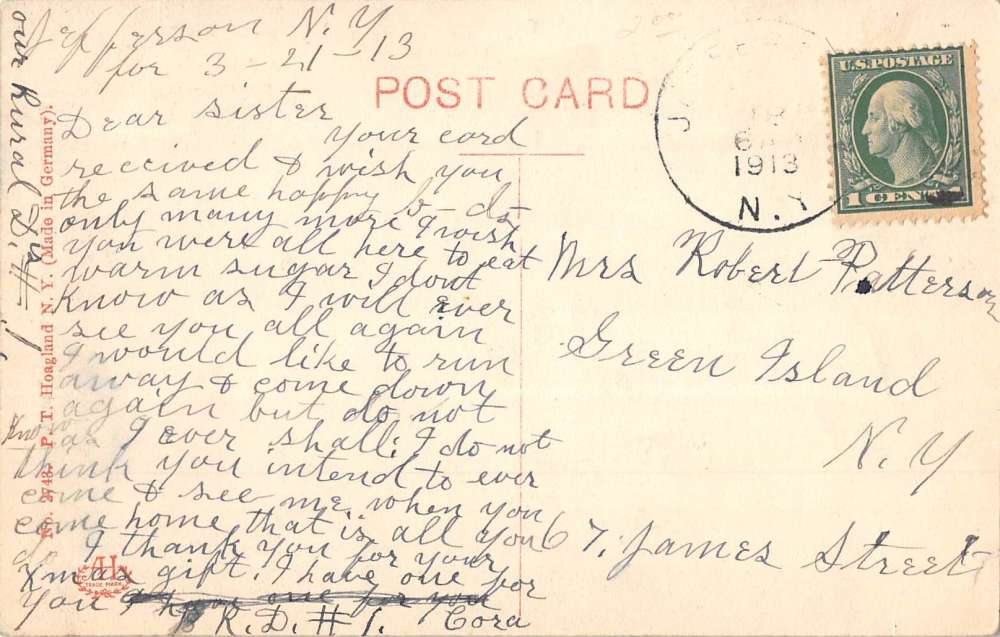 Jefferson N. Y
for 3-21-13
POST CARD
Dear sister
your card
received & wish you
the same happy b-d-
only many more I wish
you were all here to eat
warm sugar I dont
know as I will ever
see you all again
I would like to run
away & come down
again but do not
know as I ever shall. I do not
think you intend to ever
come & see me when you
come home that is all you
do I thank you for your
Xmas gift. I have one for
you
R.D.#1. Cora
our Rural D. is #1
No. 2743. P. T. Hoagland N. Y. (Made in Germany).
TRADE MARK
6
1913
N. Y
U.S. POSTAGE
1 CENT
Mrs Robert Patterson
Green Island
N. Y
67. James Street